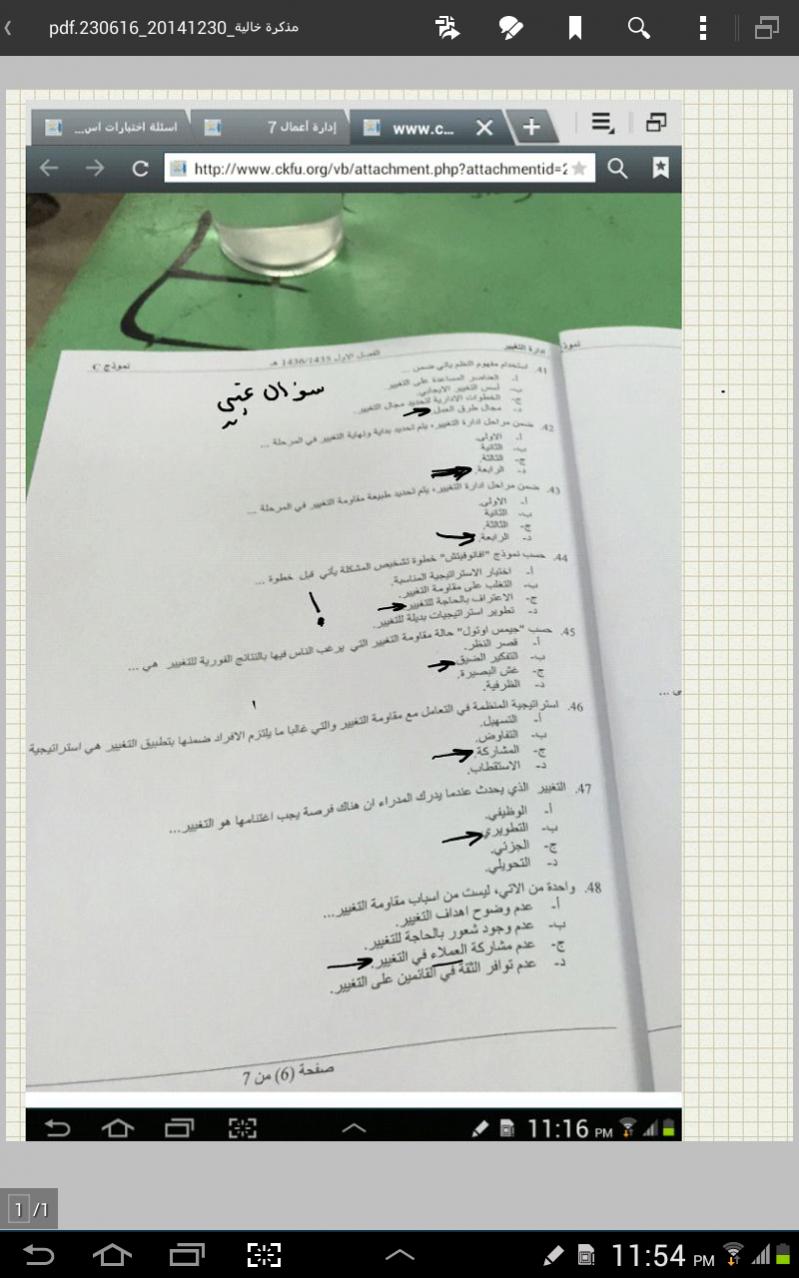 مذكرة خالية_20141230_230616.pdf
اسئلة اختبارات اس...
إدارة أعمال 7
www.c...
http://www.ckfu.org/vb/attachment.php?attachmentid=2
نموذج C
الفصل الاول 1436/1435 هـ
إدارة التغيير
نموذ
41. استخدام مفهوم النظم يأتي ضمن ...
أ- العناصر المساعدة على التغيير
ب- أسس التغيير الايجابي.
ج- الخطوات الادارية لتحديد مجال التغيير.
د- مجال طرق العمل
سؤال غبي
42. ضمن مراحل ادارة التغيير، يتم تحديد بداية ونهاية التغيير في المرحلة ...
أ- الاولى.
ب- الثانية
ج- الثالثة.
د- الرابعة.
43. ضمن مراحل ادارة التغيير، يتم تحديد طبيعة مقاومة التغيير في المرحلة ...
أ- الاولى.
ب- الثانية
ج- الثالثة.
د- الرابعة.
44. حسب نموذج "افانوفيتش" خطوة تشخيص المشكلة يأتي قبل خطوة ...
أ- اختيار الاستراتيجية المناسبة.
ب- التغلب على مقاومة التغيير.
ج- الاعتراف بالحاجة للتغيير.
د- تطوير استراتيجيات بديلة للتغيير.
!
45. حسب "جيمس اوتول" حالة مقاومة التغيير التي يرغب الناس فيها بالنتائج الفورية للتغيير هي ...
أ- قصر النظر.
ب- التفكير الضيق.
ج- غش البصيرة.
د- الظرفية.
46. استراتيجية المنظمة في التعامل مع مقاومة التغيير والتي غالبا ما يلتزم الافراد ضمنها بتطبيق التغيير هي استراتيجية
أ- التسهيل.
ب- التفاوض.
ج- المشاركة.
د- الاستقطاب.
47. التغيير الذي يحدث عندما يدرك المدراء ان هناك فرصة يجب اغتنامها هو التغيير...
أ- الوظيفي.
ب- التطويري
ج- الجزئي.
د- التحويلي.
48. واحدة من الاتي، ليست من اسباب مقاومة التغيير...
أ- عدم وضوح اهداف التغيير.
ب- عدم وجود شعور بالحاجة للتغيير.
ج- عدم مشاركة العملاء في التغيير.
د- عدم توافر الثقة في القائمين على التغيير.
صفحة (6) من 7
11:16 PM
1 /1
11:54 PM